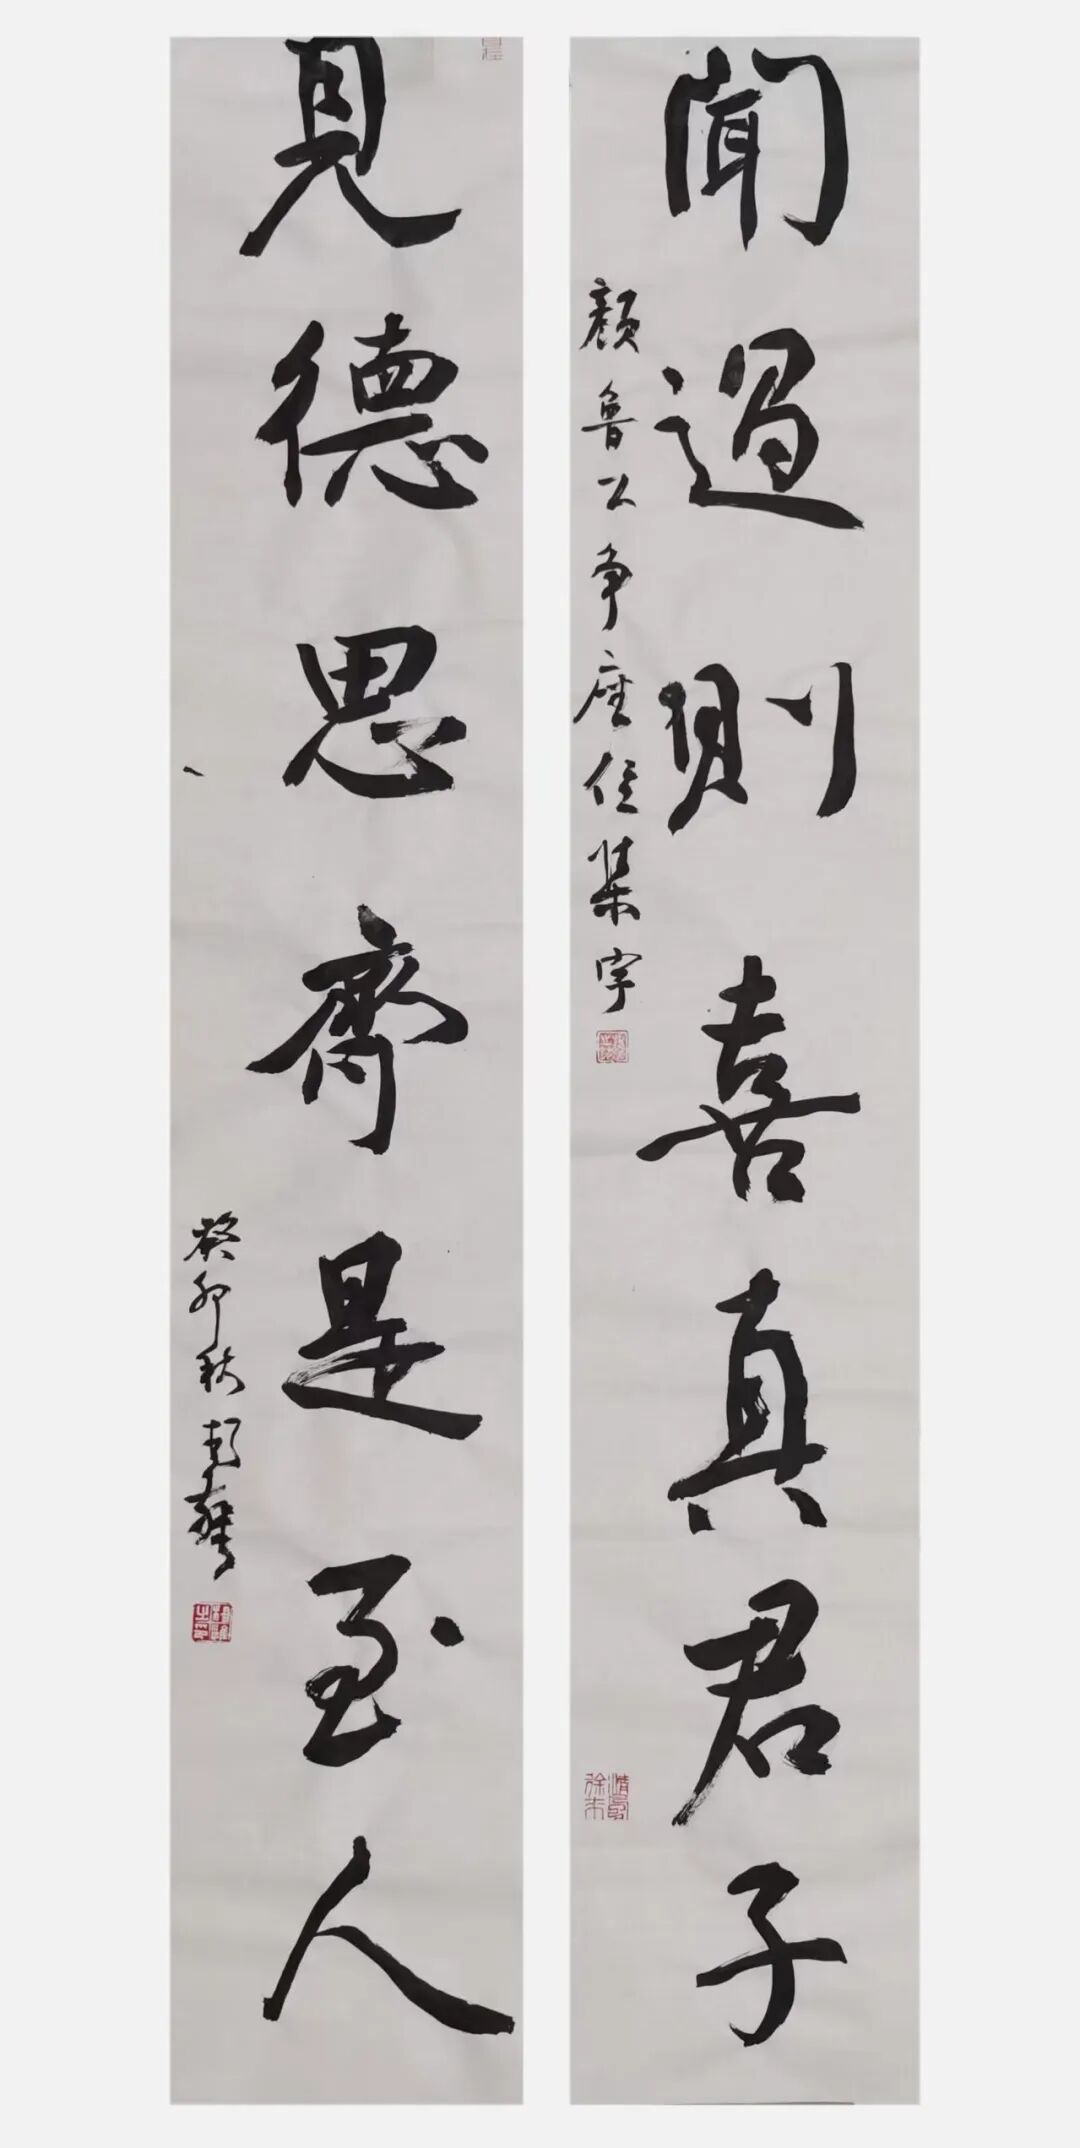 聞過則喜真君子
顔魯公争座位集字
見德思齊是至人
癸卯秋